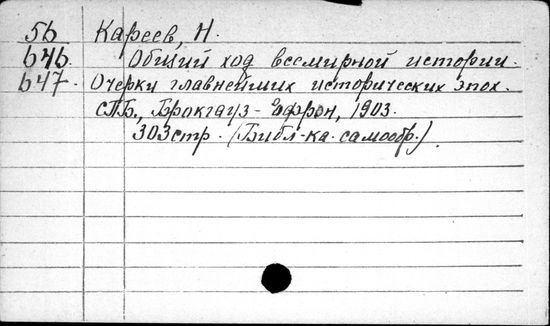 5б Кареев, Н.
646. Общий ход всемирной истории.
647. Очерки главнейших исторических эпох.
СПБ., Брокгауз-Ефрон, 1903.
303 стр. (Библ-ка самообр.)